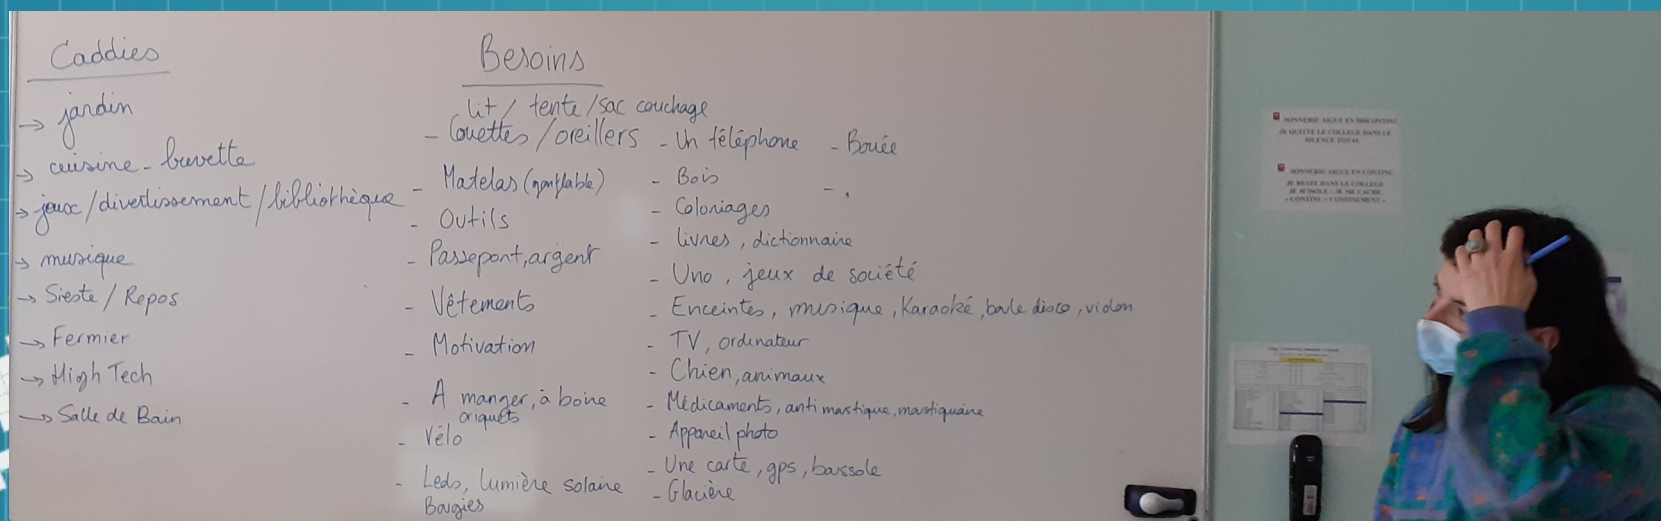 Caddies
→ jardin
→ cuisine - buvette
→ jeux / divertissement / bibliothèque
→ musique
→ Sieste / Repos
→ Fermier
→ High Tech
→ Salle de Bain
Besoins
lit / tente / sac couchage
- Couettes / oreillers
- Matelas (gonflable)
- Outils
- Passeport, argent
- Vêtements
- Motivation
- A manger, à boire
criquets
- Vélo
- Leds, lumière solaire
Bougies
- Un téléphone
- Bois
- Coloriages
- livres, dictionnaire
- Uno, jeux de société
- Enceintes, musique, Karaoké, boule disco, violon
- TV, ordinateur
- Chien, animaux
- Médicaments, anti mastique, mastiquaire
- Appareil photo
- Une carte, gps, boussole
- Glacière
- Bouée
- .
SONNERIE AIGUE EN DISCONTINU
JE QUITTE LE COLLEGE DANS LE
SILENCE TOTAL
SONNERIE AIGUE EN CONTINU
JE RESTE DANS LE COLLEGE
JE M'ISOLE / JE ME CACHE
« CONTINU = CONFINEMENT »